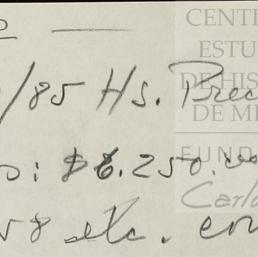 /85 Hs. Prec
o: $6.250.00
58 etc. con
CENT
ESTU
DE HIS
DE M
FUND
Carlo